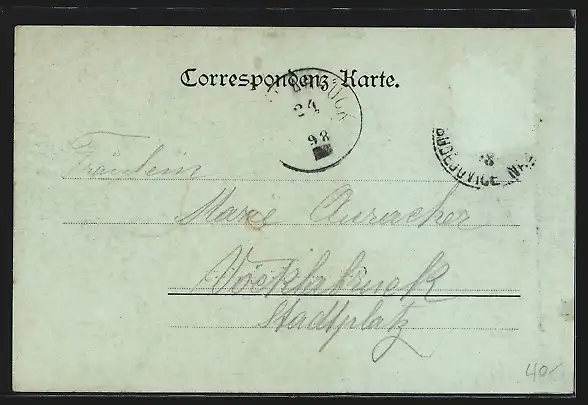 Correspondenz-Karte.
24
98
Fräulein
Marie Auracher
Vöcklabruck
Stadtplatz
40-